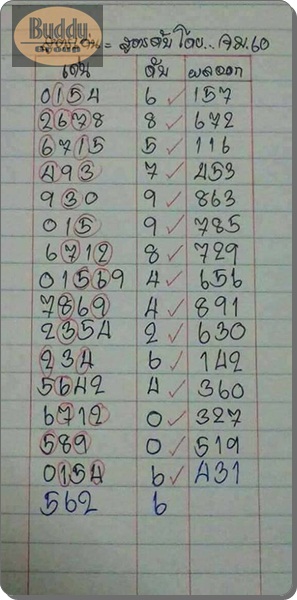 Buddy
= สูตรดับ โดย..จ.ม.60
เด่น ดับ ผลออก
0154 6 ✓ 157
2678 8 ✓ 672
6715 5 ✓ 116
493 7 ✓ 453
930 9 ✓ 863
015 9 ✓ 785
6712 8 ✓ 729
01569 4 ✓ 656
7869 4 ✓ 891
2354 2 ✓ 630
234 6 ✓ 142
5642 4 ✓ 360
6712 0 ✓ 327
589 0 ✓ 519
0154 6 ✓ 431
562 6